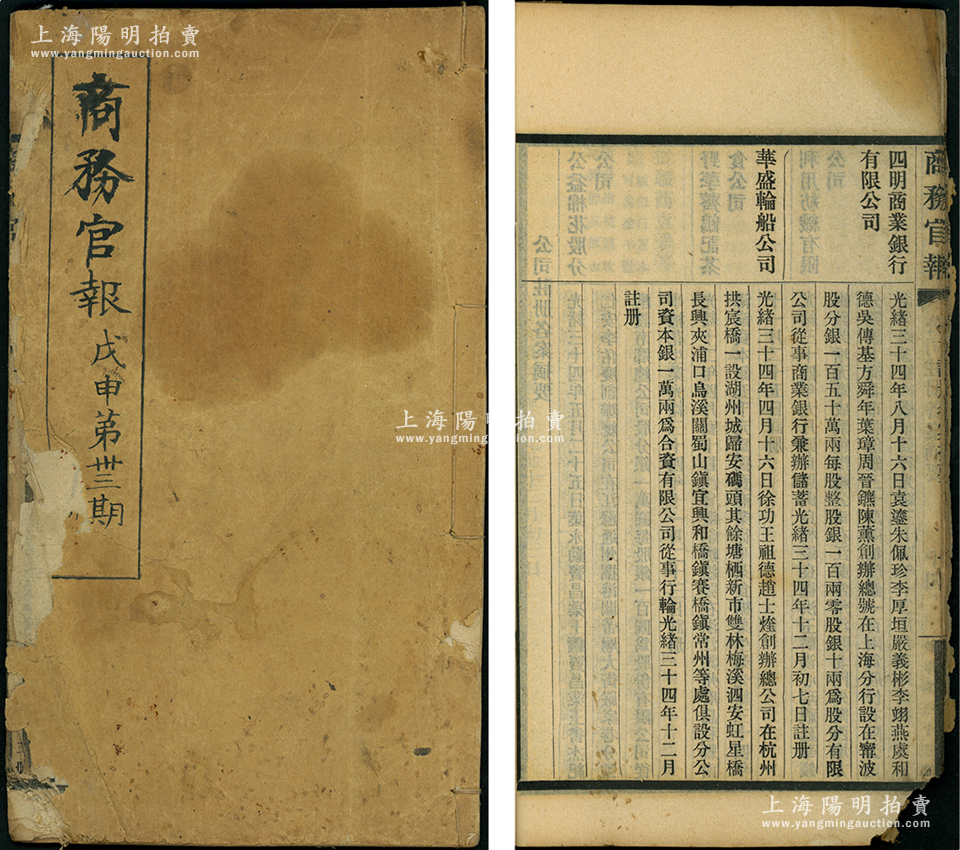 上海陽明拍賣
www.yangmingauction.com
商務官報戊申第卅三期
上海陽明拍賣
www.yangmingauction.com
商務官報
四明商業銀行
有限公司
光緒三十四年八月十六日袁鎏朱佩珍李厚垣嚴義彬李翊燕虞和
德吳傳基方舜年葉璋周晉鑣陳薰創辦總號在上海分行設在甯波
股分銀一百五十萬兩每股整股銀一百兩零股銀十兩爲股分有限
公司從事商業銀行兼辦儲蓄光緒三十四年十二月初七日註册
華盛輪船公司
光緒三十四年四月十六日徐功王祖德趙士煃創辦總公司在杭州
拱宸橋一設湖州城歸安碼頭其餘塘栖新市雙林梅溪泗安虹星橋
長興夾浦口烏溪關蜀山鎭宜興和橋鎭賽橋鎭常州等處俱設分公
司資本銀一萬兩爲合資有限公司從事行輪光緒三十四年十二月
註册
上海陽明拍賣
www.yangmingauction.com